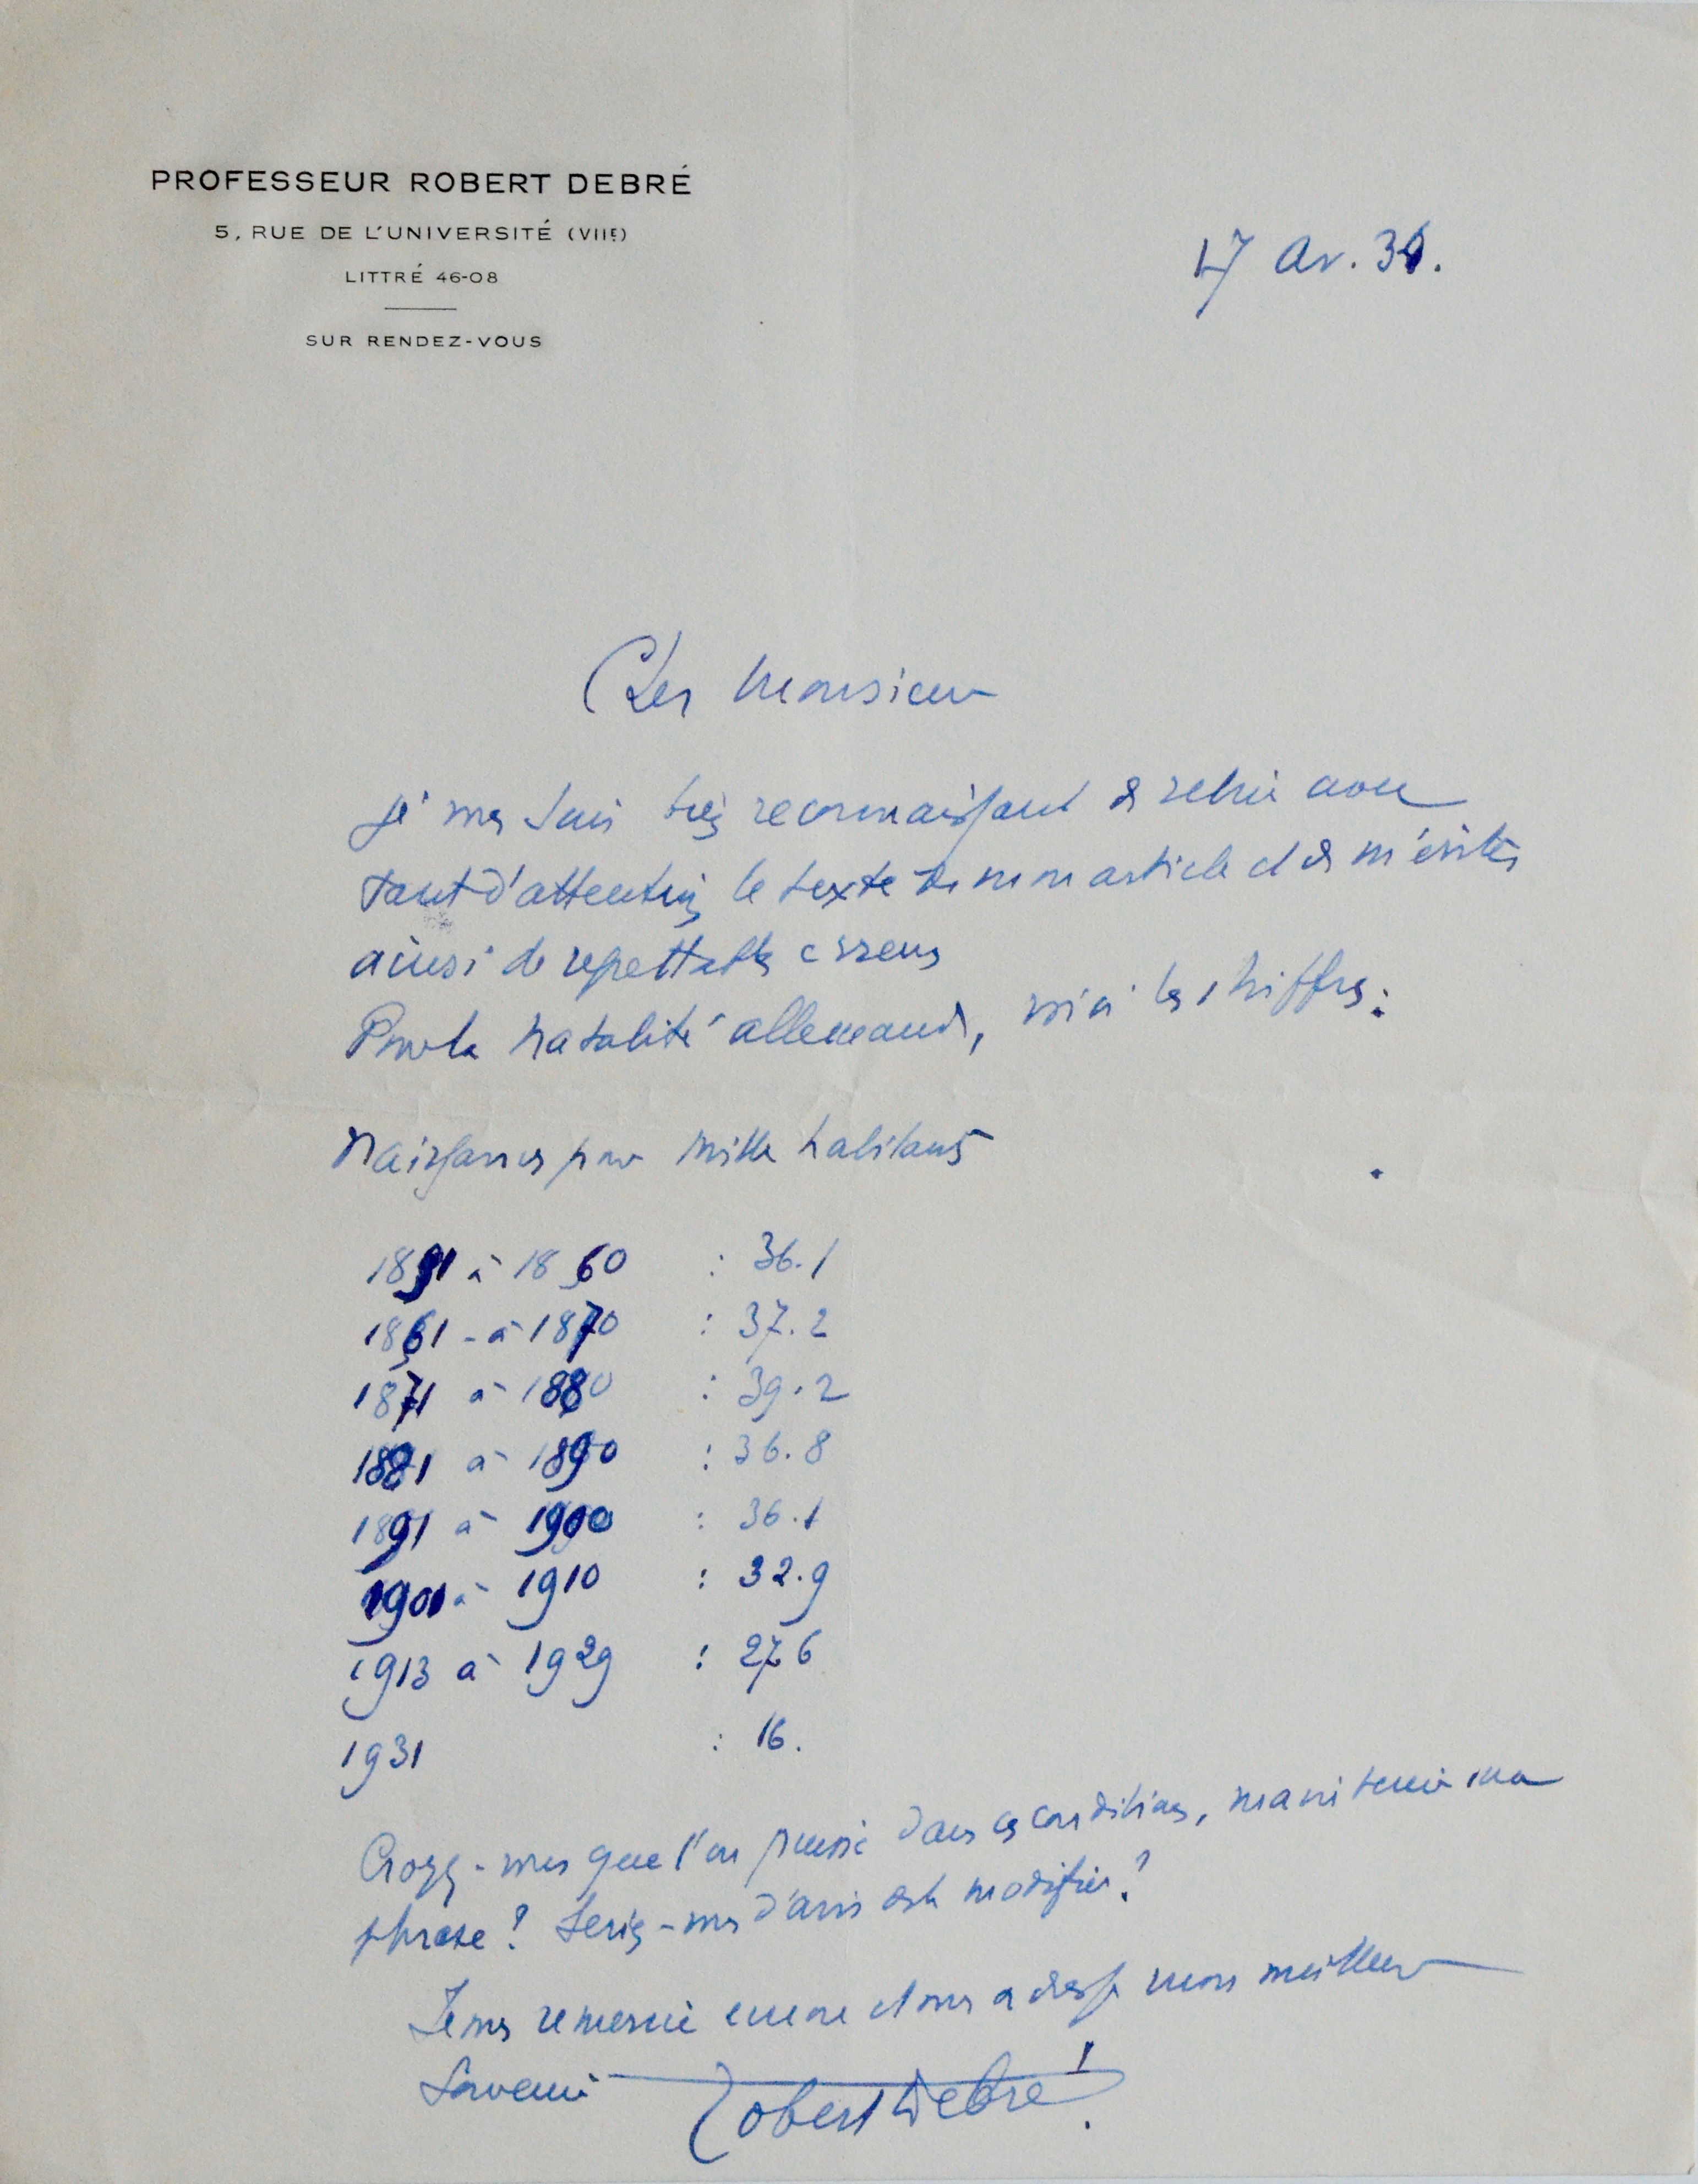 PROFESSEUR ROBERT DEBRÉ
5, RUE DE L'UNIVERSITÉ (VIIE)
LITTRÉ 46-08
SUR RENDEZ-VOUS
17 Av. 34.
Cher Monsieur
Je vous suis très reconnaissant de relire avec
tant d'attention le texte de mon article et de m'éviter
ainsi de regrettables erreurs
Pour la natalité allemande, voici les chiffres :
Naissances pour mille habitants
1851 à 1860 : 36.1
1861 - à 1870 : 37.2
1871 à 1880 : 39.2
1881 à 1890 : 36.8
1891 à 1900 : 36.1
1901 à 1910 : 32.9
1913 à 1929 : 27.6
1931 : 16.
Croyez-vous que l'on puisse dans ces conditions, maintenir ma
phrase ? Seriez-vous d'avis de la modifier ?
Je vous remercie encore et vous adresse mon meilleur
Souvenir
Robert Debré